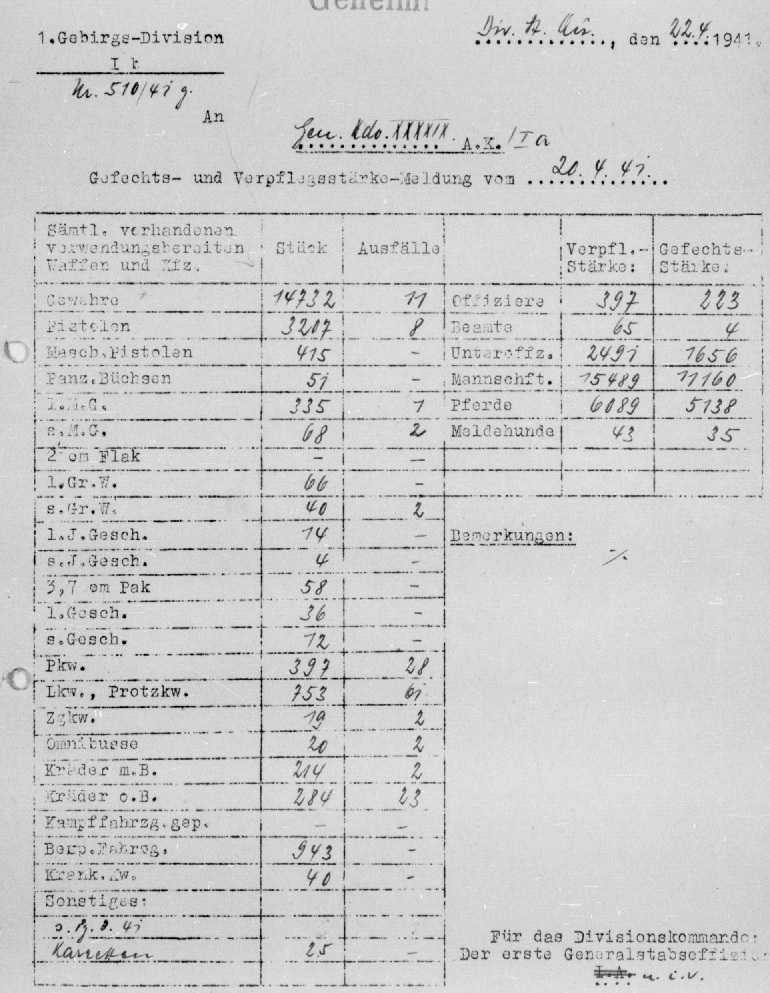 Geheim!
1.Gebirgs-Division
Div. St. Qu., den 22.4.1941.
I b
Nr. 510/41 g.
An
Gen. Kdo. XXXXIX. A.K. /Ia
Gefechts- und Verpflegsstärke-Meldung vom 20.4.41.
Sämtl. vorhandenen verwendungsbereiten Waffen und Kfz. | Stück | Ausfälle
Gewehre 14732 11
Pistolen 3207 8
Masch.Pistolen 415 -
Panz.Büchsen 51 -
l.M.G. 335 1
s.M.G. 68 2
2 cm Flak - -
l.Gr.W. 66 -
s.Gr.W. 40 2
l.J.Gesch. 14 -
s.J.Gesch. 4 -
3,7 cm Pak 58 -
l.Gesch. 36 -
s.Gesch. 12 -
Pkw. 397 28
Lkw., Protzkw. 753 61
Zgkw. 19 2
Omnibusse 20 2
Kräder m.B. 214 2
Kräder o.B. 284 23
Kampffahrzg.gep. - -
Besp.Fahrzg. 943 -
Krank.Kw. 40 -
Sonstiges:
41
Karetten 25 -
Verpfl.-Stärke: | Gefechts-Stärke:
Offiziere 397 223
Beamte 65 4
Unteroffz. 2491 1656
Mannschft. 15489 11160
Pferde 6089 5138
Meldehunde 43 35
Bemerkungen:
·/.
Für das Divisionskommando:
Der erste Generalstabsoffizier
I.A. u. i.V.